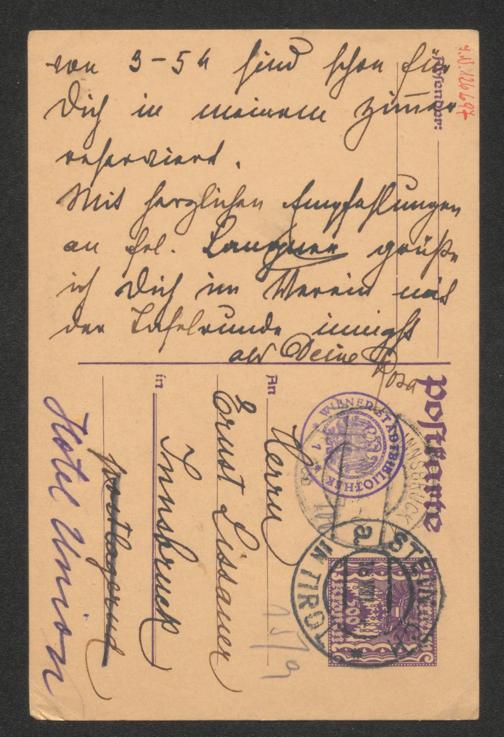 von 3-5h sind schon für
Dich in meinem Zimmer
reserviert.
Mit herzlichen Empfehlungen
an Frl. Langner grüße
ich Dich im Verein mit
der Tafelrunde innigst
als Deine Rosa
Absender:
I.N. 126697
Postkarte
An
Herrn
Ernst Lissauer
in
Innsbruck
postlagernd
Hotel Union
15/9
WIENER STADTBIBLIOTHEK
INNSBRUCK
IN TIROL
a
500